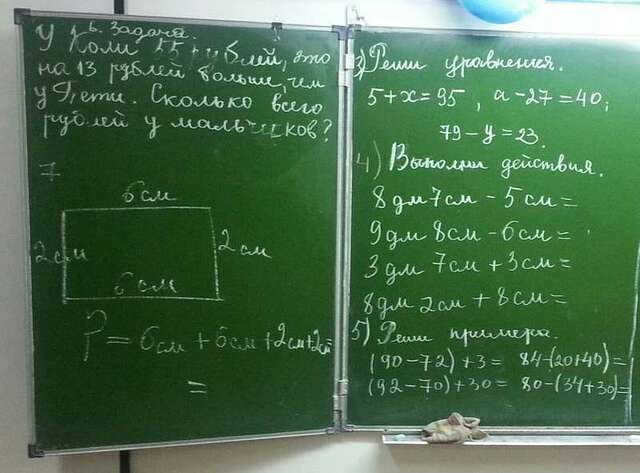 6. Задача.
У Коли 55 рублей, это
на 13 рублей больше, чем
у Пети. Сколько всего
рублей у мальчиков?
7
6см
2см
2см
6см
P = 6см + 6см + 2см + 2см =
=
3) Реши уравнения.
5 + x = 95 , а - 27 = 40;
79 - y = 23.
4) Выполни действия.
8 дм 7 см - 5 см =
9 дм 8 см - 6 см =
3 дм 7 см + 3 см =
8 дм 2 см + 8 см =
5) Реши примера.
(90 - 72) + 3 = 84 - (20 + 40) =
(92 - 70) + 30 = 80 - (34 + 30) =